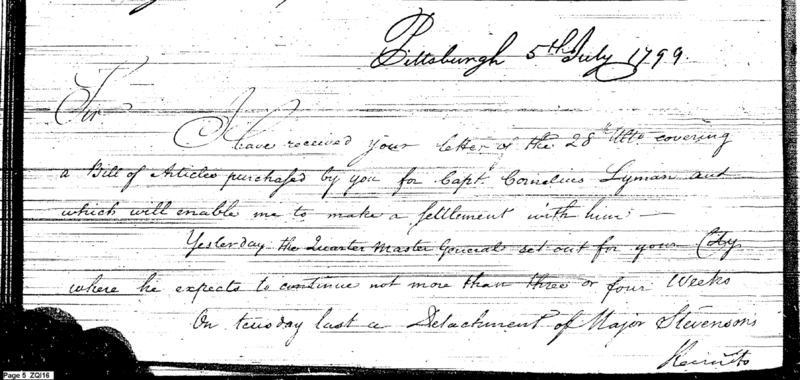 Pittsburgh 5th July 1799.
Sir
I have received your letter of the 28th Ulto. covering
a Bill of Articles purchased by you for Capt. Cornelius Lyman and
which will enable me to make a settlement with him —
Yesterday the Quarter Master General set out for your City
where he expects to continue not more than three or four Weeks
On tuesday last a Detachment of Major Stevensons
Recruits
Page 5 ZQI16